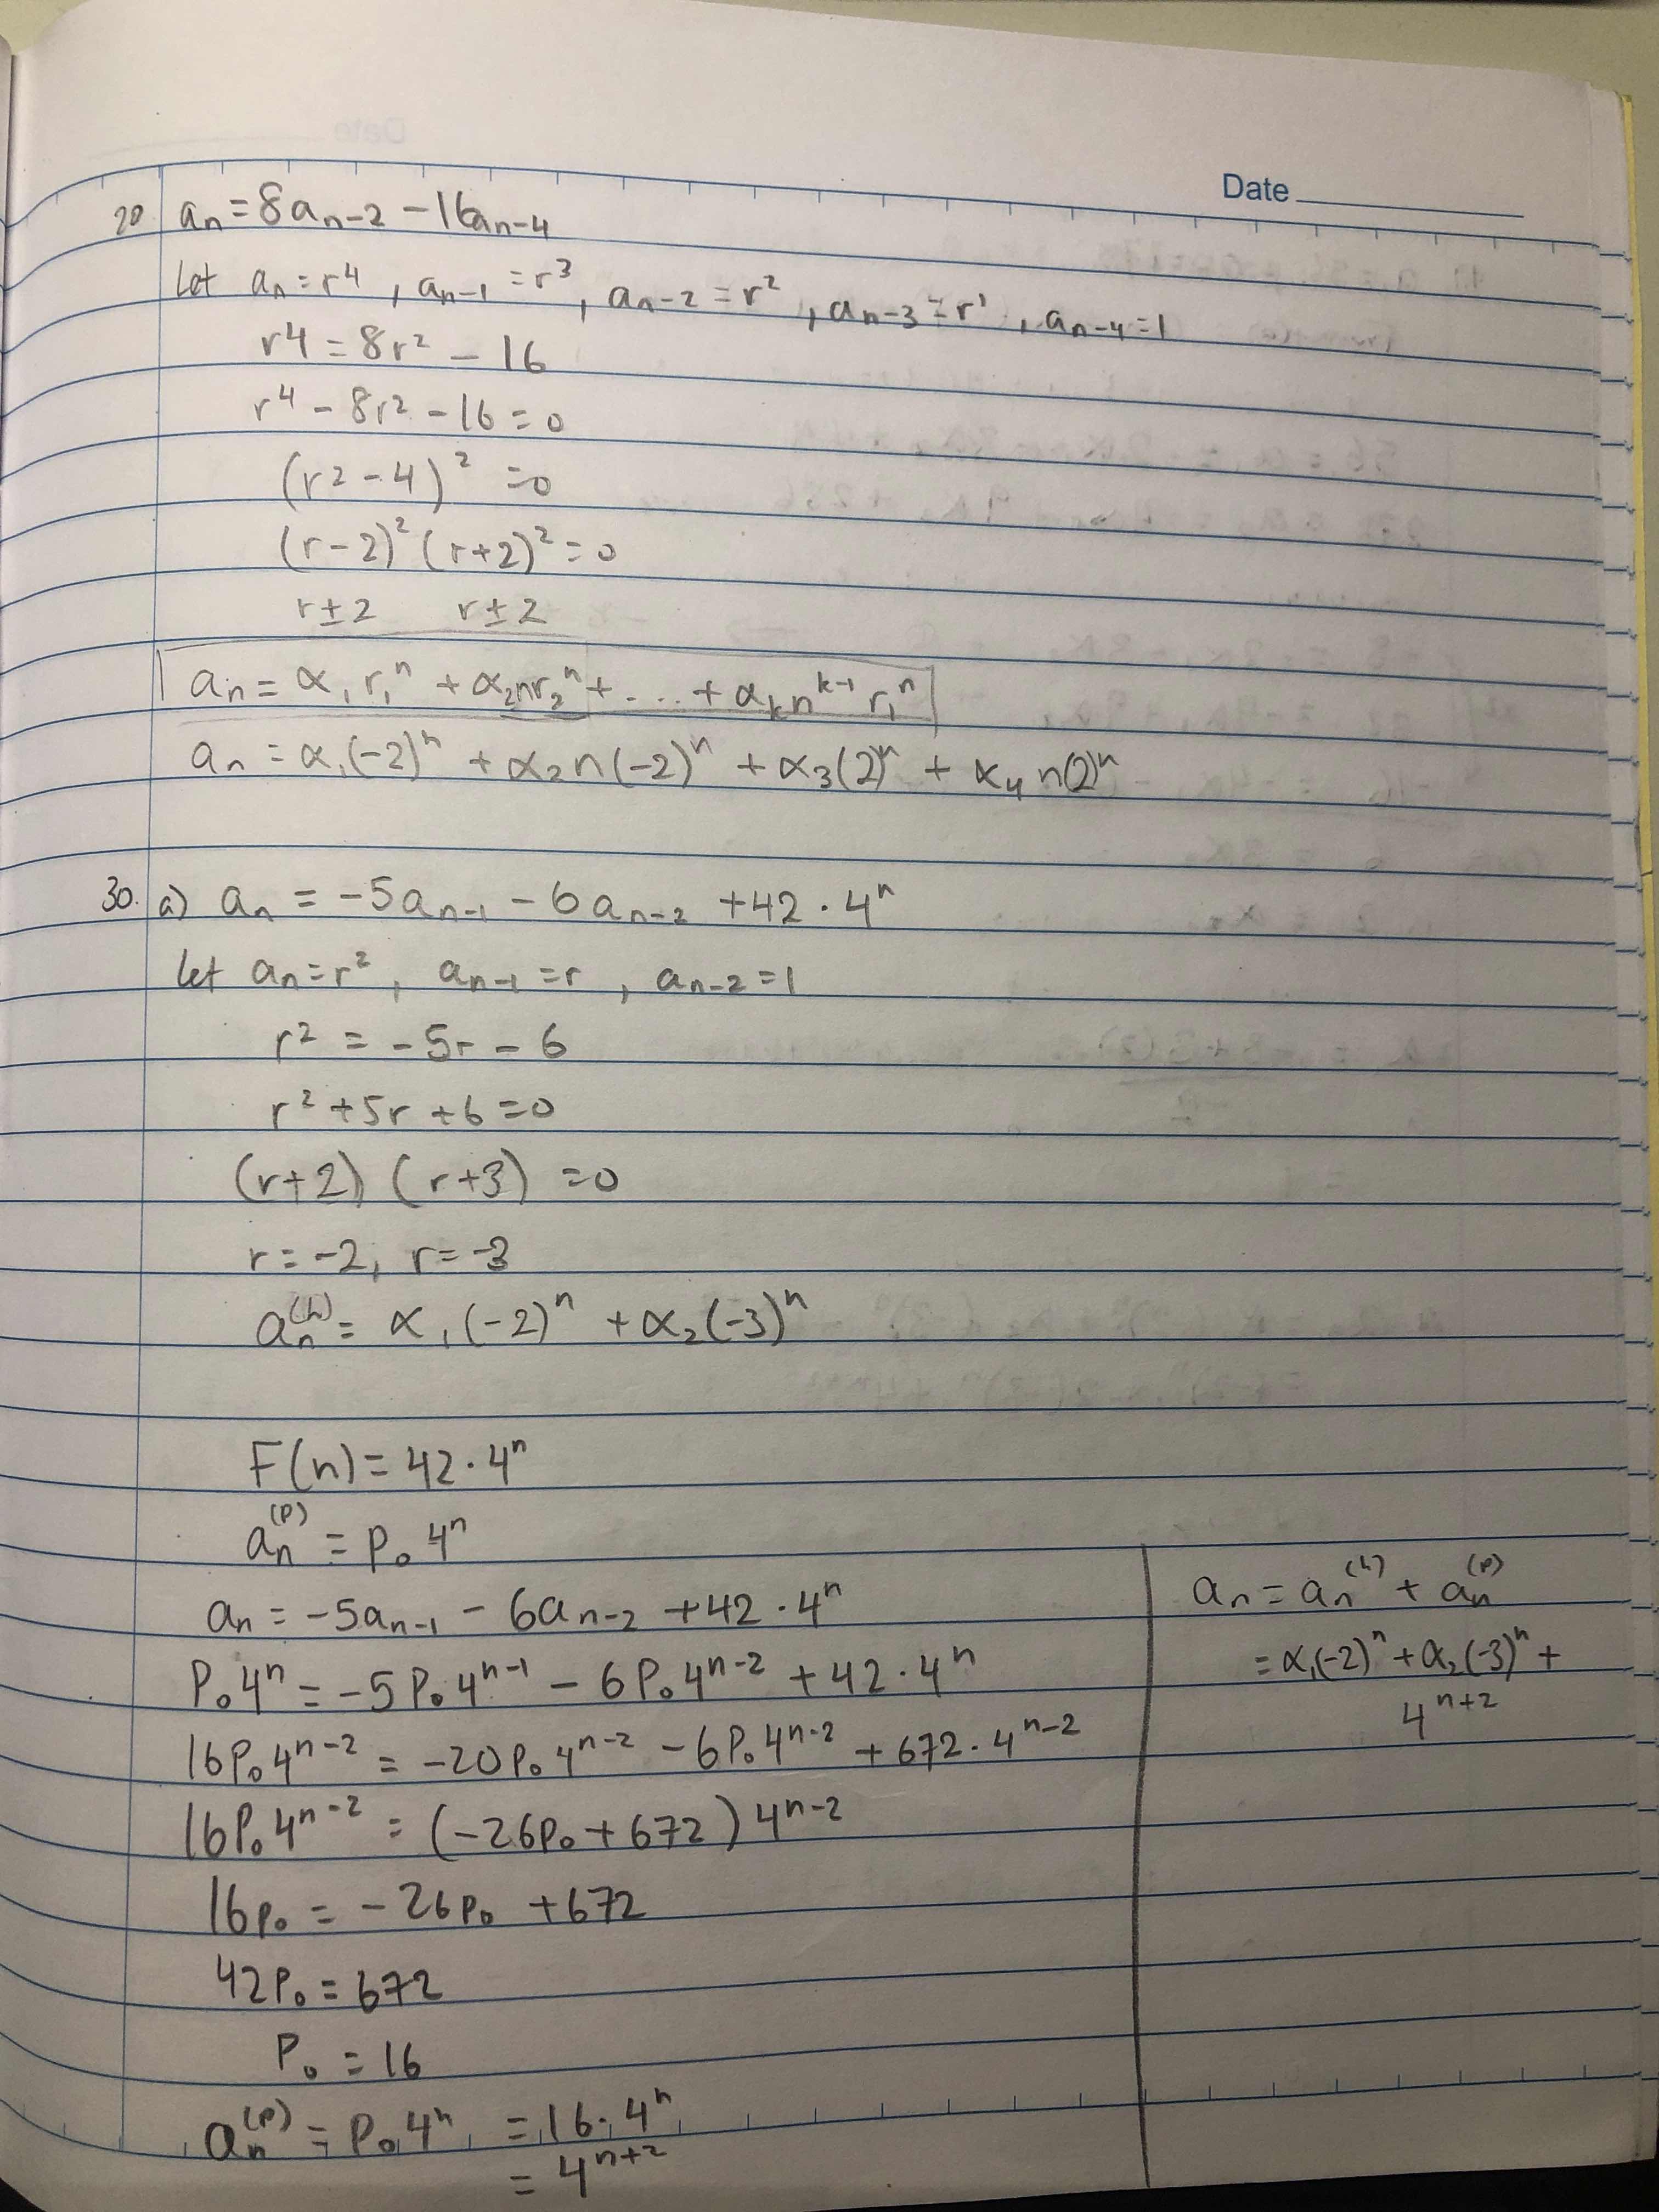 Date
20. aₙ = 8aₙ₋₂ - 16aₙ₋₄
Let aₙ = r⁴, aₙ₋₁ = r³, aₙ₋₂ = r², aₙ₋₃ = r¹, aₙ₋₄ = 1
r⁴ = 8r² - 16
r⁴ - 8r² - 16 = 0
(r² - 4)² = 0
(r-2)² (r+2)² = 0
r ± 2 r ± 2
aₙ = α₁r₁ⁿ + α₂nr₂ⁿ + .... + αₖnᵏ⁻¹r₁ⁿ
aₙ = α₁(-2)ⁿ + α₂n(-2)ⁿ + α₃(2)ⁿ + α₄n(2)ⁿ
30. a) aₙ = -5aₙ₋₁ - 6aₙ₋₂ + 42 · 4ⁿ
let aₙ = r², aₙ₋₁ = r, aₙ₋₂ = 1
r² = -5r - 6
r² + 5r + 6 = 0
(r+2) (r+3) = 0
r = -2, r = -3
aₙ⁽ʰ⁾ = α₁(-2)ⁿ + α₂(-3)ⁿ
F(n) = 42 · 4ⁿ
aₙ⁽ᵖ⁾ = P₀ 4ⁿ
aₙ = -5aₙ₋₁ - 6aₙ₋₂ + 42 · 4ⁿ
P₀4ⁿ = -5P₀4ⁿ⁻¹ - 6P₀4ⁿ⁻² + 42 · 4ⁿ
16P₀4ⁿ⁻² = -20P₀4ⁿ⁻² - 6P₀4ⁿ⁻² + 672 · 4ⁿ⁻²
16P₀4ⁿ⁻² = (-26P₀ + 672) 4ⁿ⁻²
16P₀ = -26P₀ + 672
42P₀ = 672
P₀ = 16
aₙ⁽ᵖ⁾ = P₀4ⁿ = 16 · 4ⁿ
= 4ⁿ⁺²
aₙ = aₙ⁽ʰ⁾ + aₙ⁽ᵖ⁾
= α₁(-2)ⁿ + α₂(-3)ⁿ +
4ⁿ⁺²